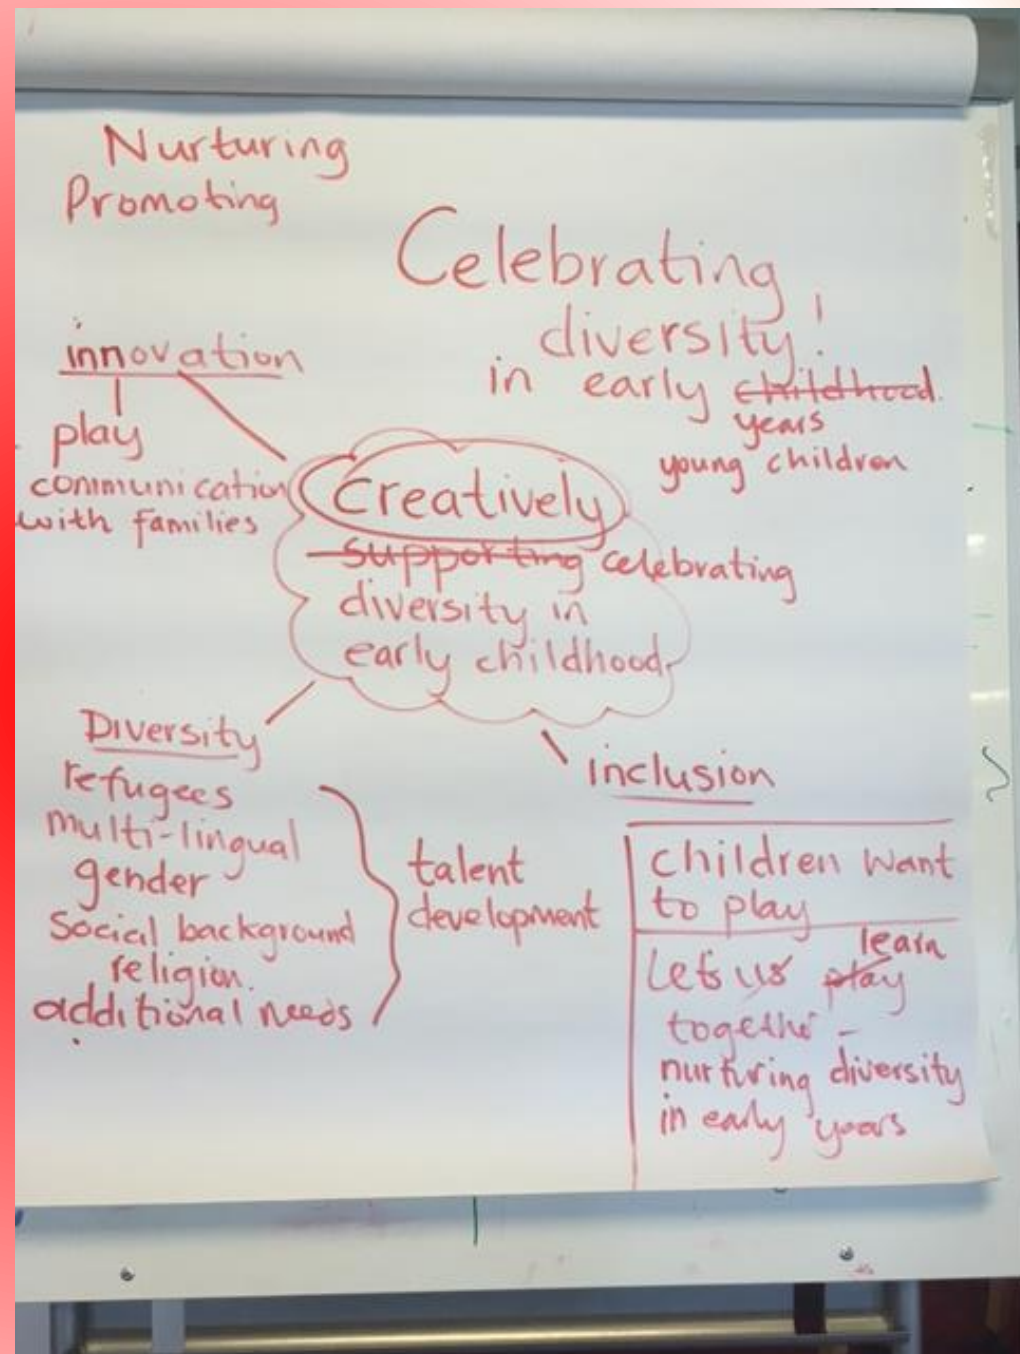 Nurturing
Promoting
Celebrating
diversity!
in early childhood
years
young children
innovation
play
communication
with families
creatively
supporting celebrating
diversity in
early childhood
Diversity
refugees
multi-lingual
gender
Social background
religion.
additional needs
talent
development
inclusion
children want
to play
learn
Let us play
together -
nurturing diversity
in early years